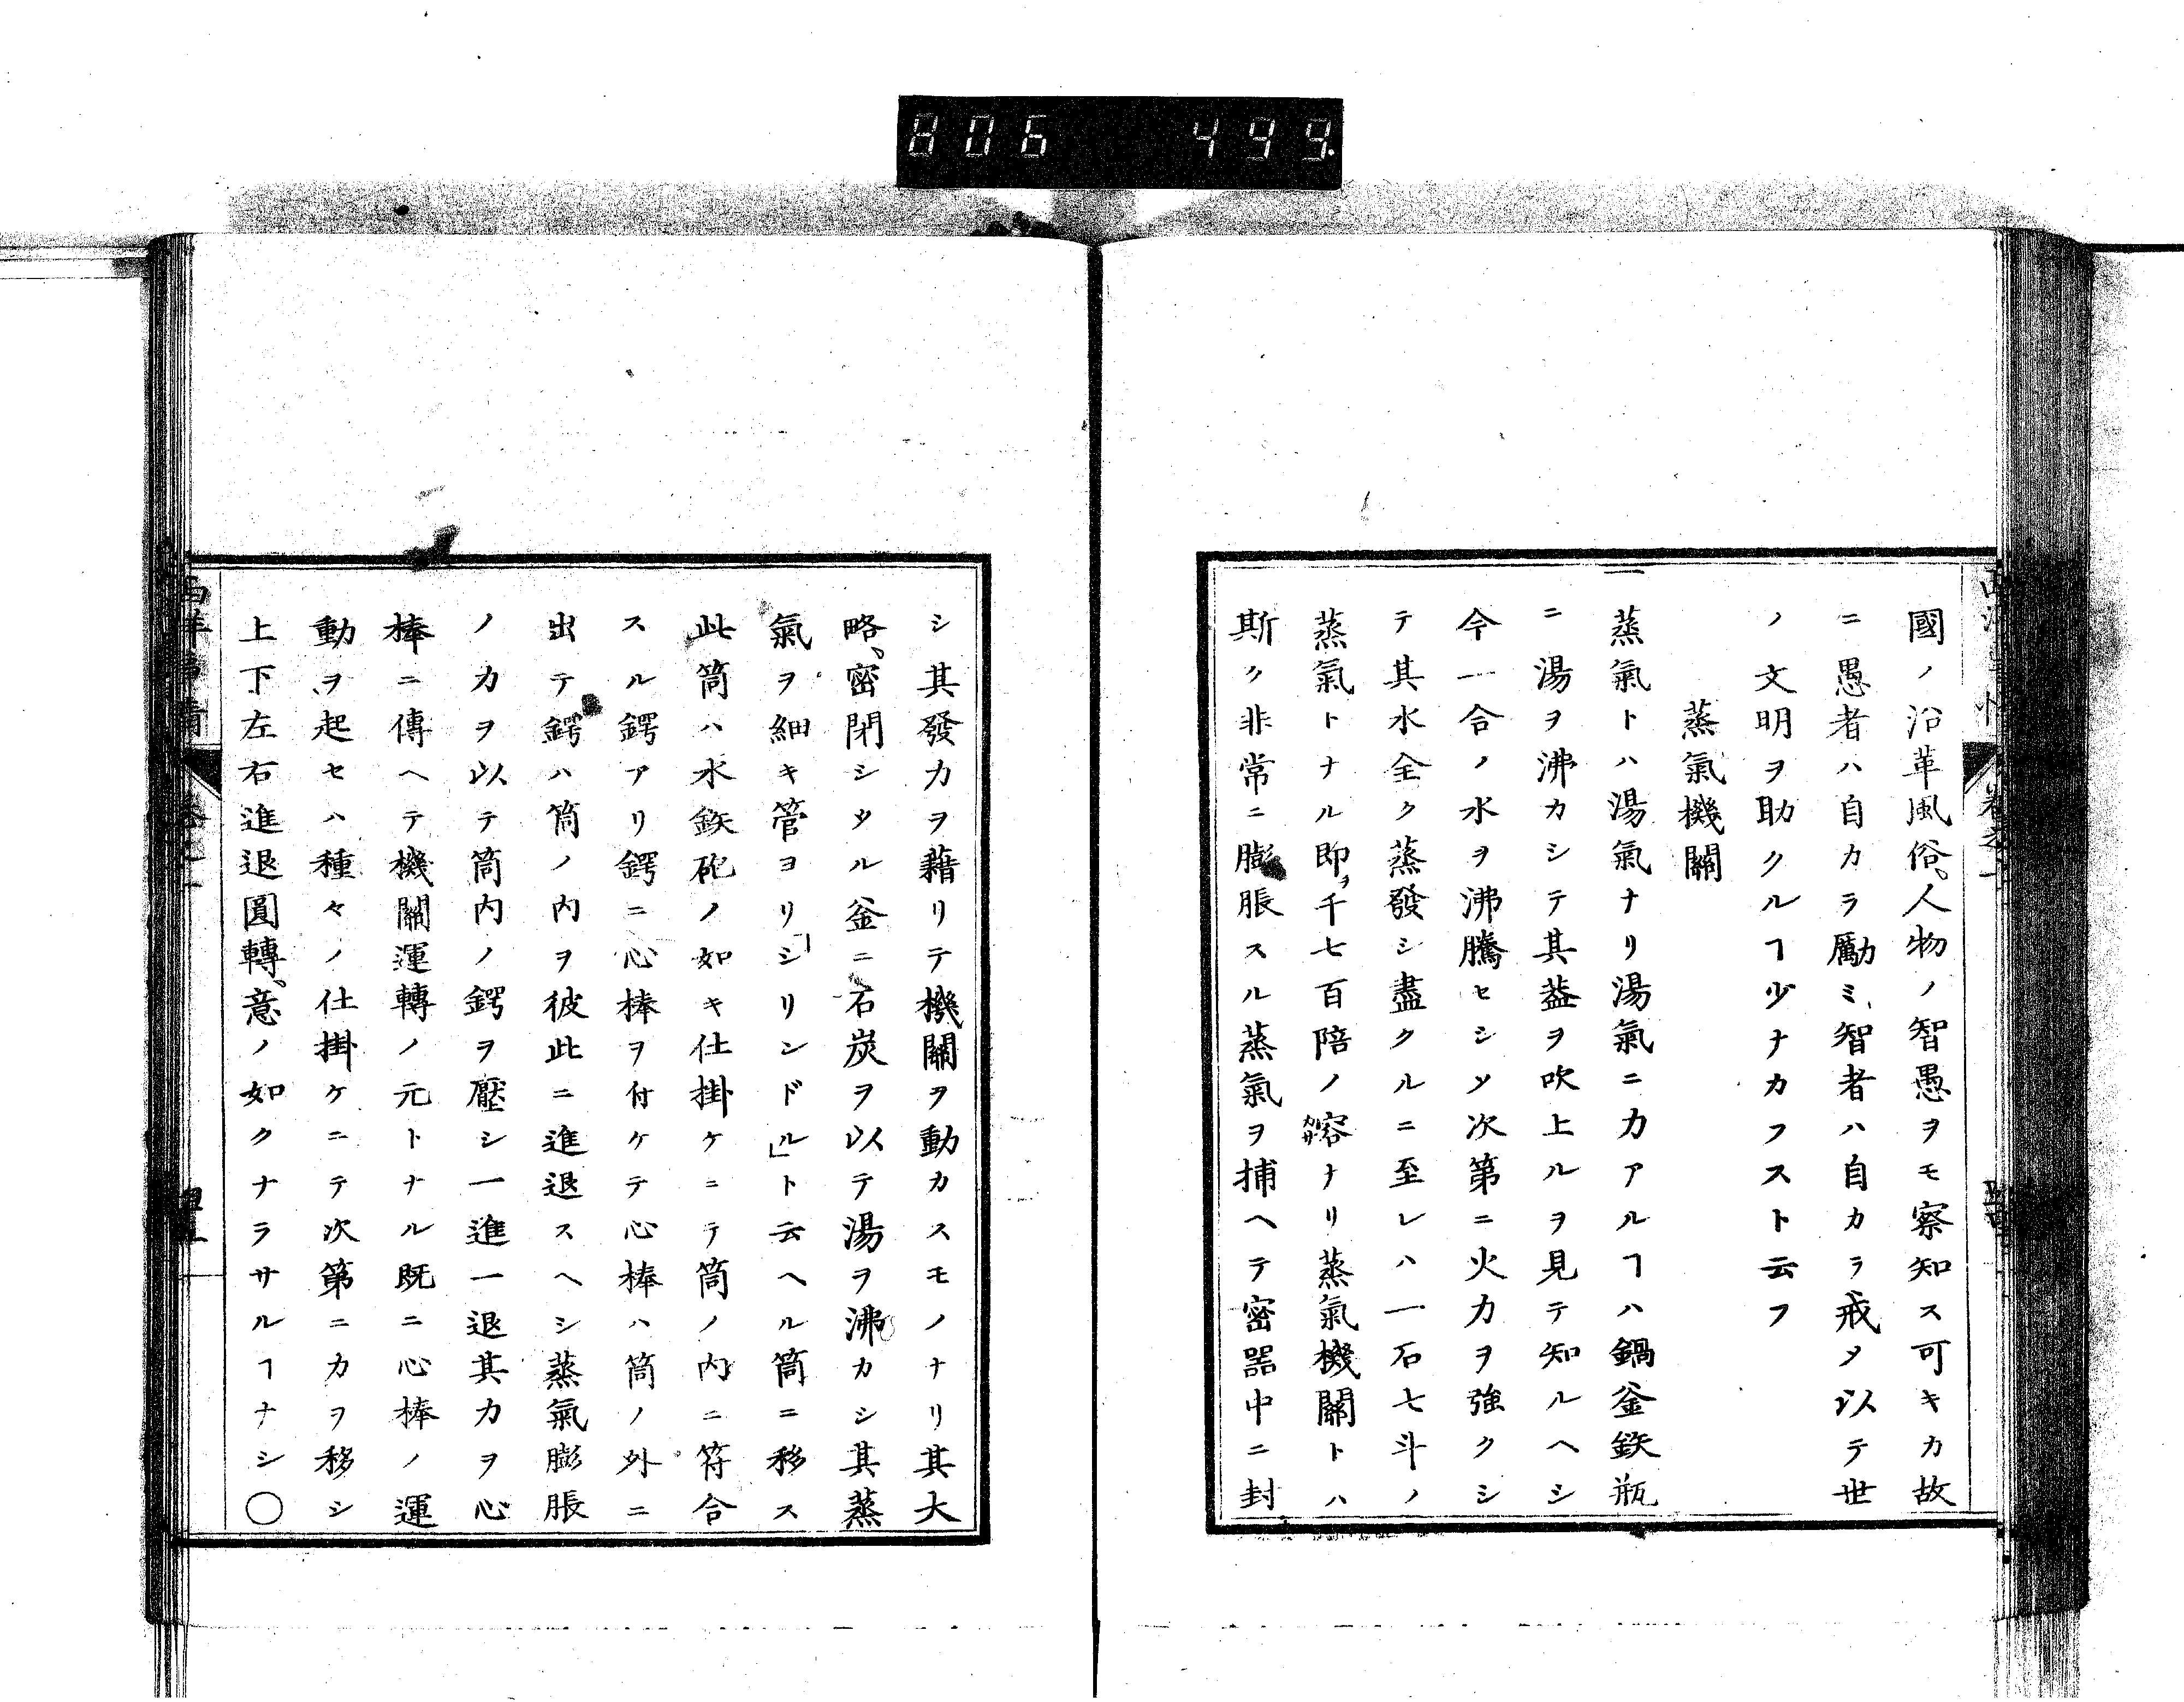 806 499.
國ノ沿革風俗、人物ノ智愚ヲモ察知ス可キカ故
ニ愚者ハ自カラ勵ミ、智者ハ自カラ戒メ以テ世
ノ文明ヲ助クルヿ少ナカフスト云フ
蒸氣機關
一蒸氣トハ湯氣ナリ湯氣ニ力アルヿハ鍋釜鉄瓶
ニ湯ヲ沸カシテ其葢ヲ吹上ルヲ見テ知ルヘシ
今一合ノ水ヲ沸騰セシメ次第ニ火力ヲ強クシ
テ其水全ク蒸發シ盡クルニ至レハ一石七斗ノ
蒸氣トナル即千七百陪ノ容ナリ蒸氣機關トハ
斯ク非常ニ膨脹スル蒸氣ヲ捕ヘテ密器中ニ封
シ其發力ヲ藉リテ機關ヲ動カスモノナリ其大
略、密閉シタル釜ニ石炭ヲ以テ湯ヲ沸カシ其蒸
氣ヲ細キ管ヨリ「シリンドル」ト云ヘル筒ニ移ス
此筒ハ水鉄砲ノ如キ仕掛ケニテ筒ノ内ニ符合
スル鍔アリ鍔ニ心棒ヲ付ケテ心棒ハ筒ノ外ニ
出テ鍔ハ筒ノ内ヲ彼此ニ進退スヘシ蒸氣膨脹
ノ力ヲ以テ筒内ノ鍔ヲ壓シ一進一退其力ヲ心
棒ニ傳ヘテ機關運轉ノ元トナル既ニ心棒ノ運
動ヲ起セハ種々ノ仕掛ケニテ次第ニ力ヲ移シ
上下左右進退圓轉、意ノ如クナラサルヿナシ〇